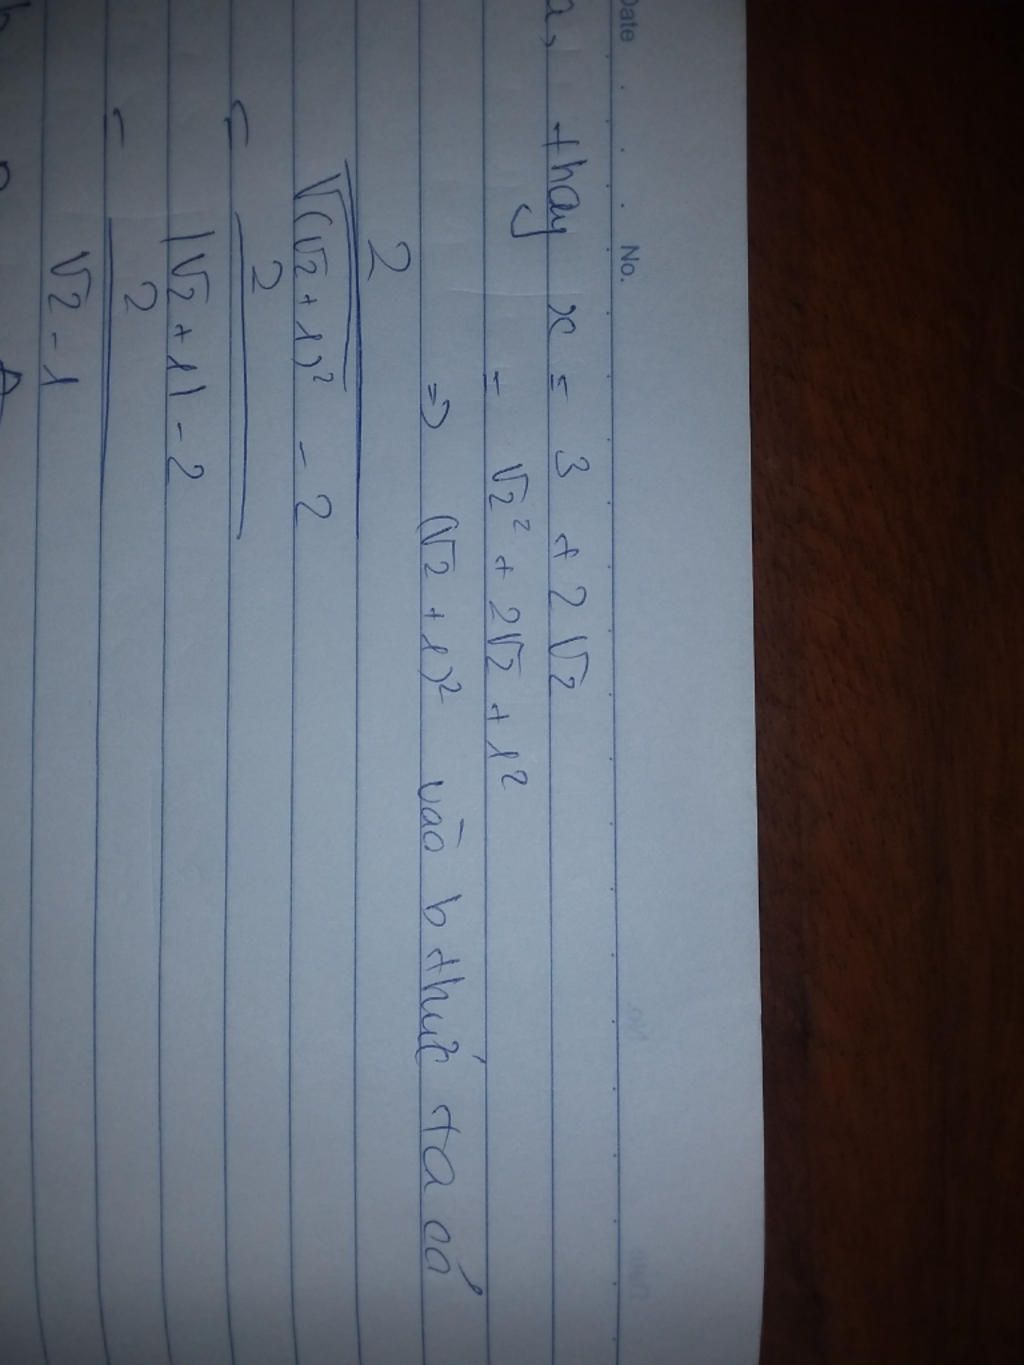 Date No.
a, thay x = 3 + 2√2
= √2² + 2√2 + 1²
=> (√2 + 1)² vào b thức ta có
2
√(√2 + 1)² - 2
=
2
|√2 + 1| - 2
=
2
√2 - 1